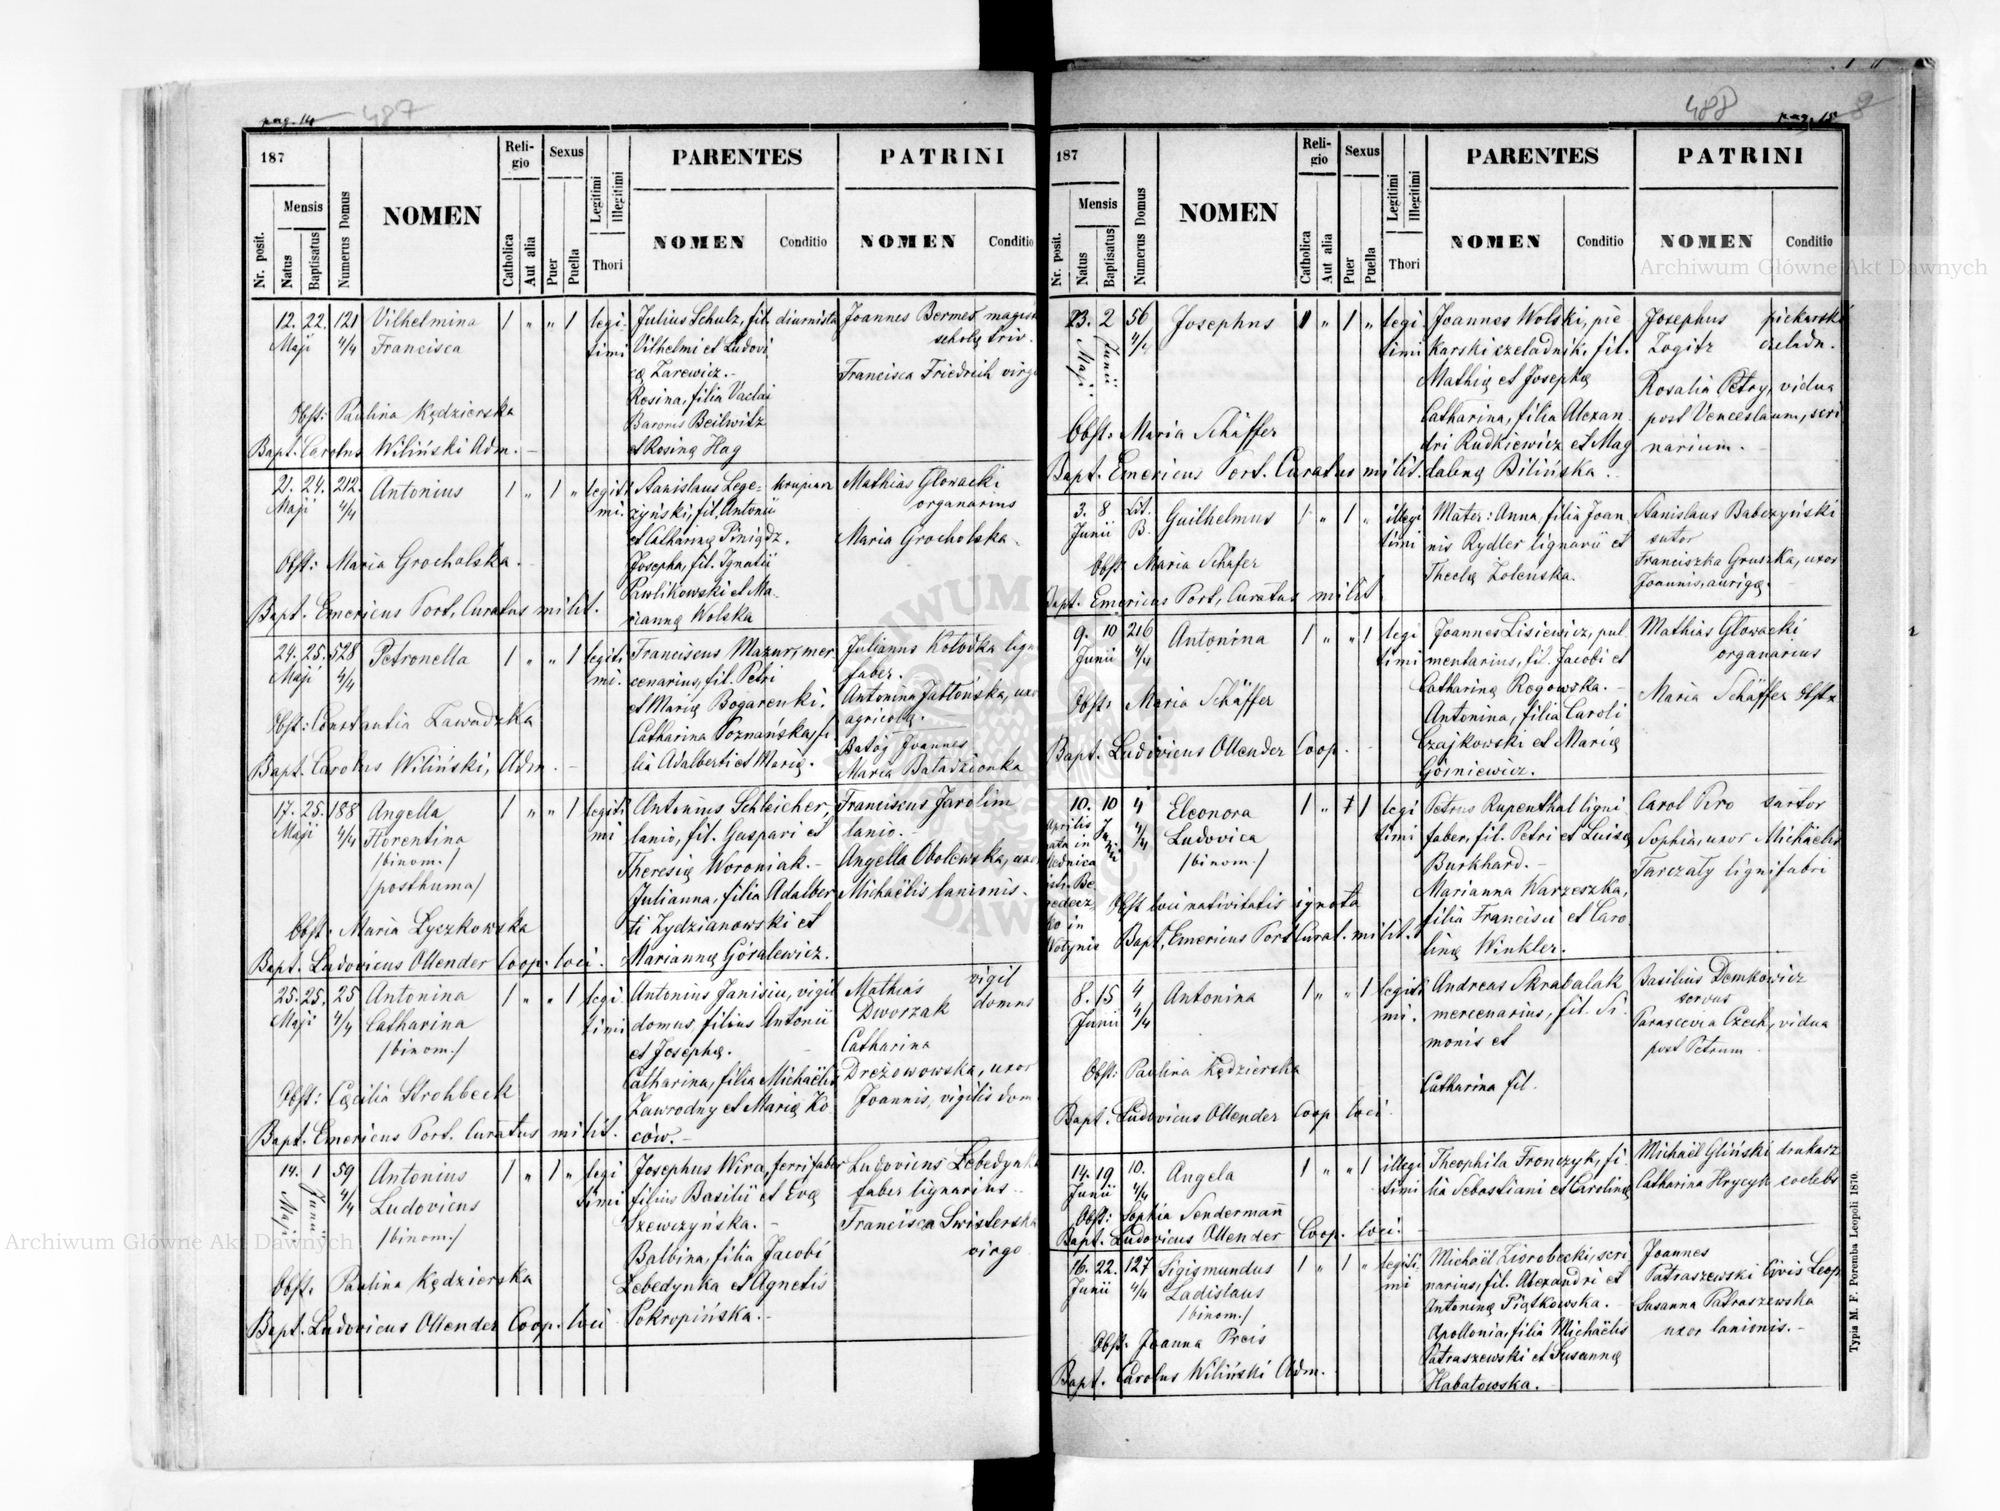 pag. 14
487
187
Nr. posit.
Mensis
Natus
Baptisatus
Numerus Domus
NOMEN
Religio
Catholica
Aut alia
Sexus
Puer
Puella
Legitimi
Illegitimi
Thori
PARENTES
NOMEN
Conditio
PATRINI
NOMEN
Conditio
12. 22. 121 Vilhelmina 1 " " 1 legi
Maji 4/4 Francisca timi
Julius Schulz, fil. diurnista
Vilhelmi et Ludovi
cę Zarewicz.-
Rosina, filia Vaclai
Baronis Beilwitz
et Rosinę Hag
Joannes Bermes magist
scholę triv.
Francisca Friedrich virgo
Obst: Paulina Kędzierska
Bapt. Carolus Wiliński Adm.
21. 24. 212. Antonius 1 " 1 " legiti
Maji 4/4 mi.
Stanislaus Lege- krupiarz
zyński, fil. Antonii
et Catharinę Piniądz.
Josepha, fil. Ignatii
Pawlikowski et Ma-
riannę Wolska
Mathias Glowacki
organarius
Maria Grocholska
Obst: Maria Grocholska.
Bapt. Emericus Port, Curatus milit.
24. 25. 528 Petronella 1 " " 1 legiti
Maji 4/4 mi.
Franciscus Mazur, mer
cenarius, fil. Petri
et Marię Bogarenki.
Catharina Poznańska, fi
lia Adalberti et Marię.
Julianus Kolodka lign
faber.
Antonina Jabłońska, uxo
agricolę.
Batóg Joannes
Maria Baladzionka
Obst: Constantia Zawadzka
Bapt. Carolus Wiliński, Adm.
17. 25. 188 Angella 1 " " 1 legiti
Maji 4/4 Florentina mi
/binom./
(posthuma)
Antonius Schleicher,
lanio, fil. Gaspari et
Theresię Woroniak.-
Julianna, filia Adalber
ti Zydzianowski et
Mariannę Góralewicz.
Franciscus Jarolim
lanio.
Angella Obolewska, uxo
Michaëlis lanionis.
Obst. Maria Łyczkowska
Bapt. Ludovicus Ollender Coop. loci.
25. 25. 25 Antonina 1 " " 1 legi
Maji 4/4 Catharina timi
/binom./
Antonius Janisiu, vigil
domus, filius Antonii
et Josephę.
Catharina, filia Michaëlis
Zawrodny et Marię Ko
ców.-
Mathias vigil
Dworzak domus
Catharina
Dreżowowska, uxor
Joannis, vigilis dom
Obst: Cęcilia Strohbeck
Bapt. Emericus Port. Curatus milit.
14. 1 59 Antonius 1 " 1 " legi
Maji Junii 4/4 Ludovicus timi
/binom./
Josephus Wira, ferrifaber
filius Basilii et Evę
Szewczyńska.-
Balbina, filia Jacobi
Lebedynka et Agnetis
Pokropińska.-
Ludovicus Lebedynka
faber lignarius
Francisca Swisterska
virgo
Obst. Paulina Kędzierska
Bapt. Ludovicus Ollender Coop. loci
488
pag. 15
187
Nr. posit.
Mensis
Natus
Baptisatus
Numerus Domus
NOMEN
Religio
Catholica
Aut alia
Sexus
Puer
Puella
Legitimi
Illegitimi
Thori
PARENTES
NOMEN
Conditio
PATRINI
NOMEN
Conditio
23. 2 56 Josephus 1 " 1 " legi
Maji Junii 4/4 timi
Joannes Wolski, pie
karski czeladnik, fil.
Mathię et Josephę
Catharina, filia Alexan
dri Rudkiewicz et Mag
dalenę Bilińska.
Josephus piekarski
Zogitz czeladn.
Rosalia Petry, vidua
post Venceslaum, scri
narium.
Obst: Maria Schäffer
Bapt. Emericus Port. Curatus milit.
3. 8 Lit. Guilhelmus 1 " 1 " illegi
Junii B. timi
Mater: Anna, filia Joan
nis Rydler lignarii et
Theclę Zolenska.
Stanislaus Babczyński
sutor
Franciszka Gruszka, uxor
Joannis, aurigę.
Obst: Maria Schäfer
Bapt. Emericus Port, Curatus milit.
9. 10 216 Antonina 1 " " 1 legi
Junii 4/4 timi
Joannes Lisiewicz, pul
mentarius, fil. Jacobi et
Catharinę Rogowska.-
Antonina, filia Caroli
Czajkowski et Marię
Górniewicz.
Mathias Glowacki
organarius
Maria Schäffer Obst.
Obst: Maria Schäffer
Bapt. Ludovicus Ollender Coop.
10. 10 4 Eleonora 1 " 1 legi
Aprilis Junii 4/4 Ludovica timi
/binom./
Petrus Rupenthal ligni
faber, fil. Petri et Luisę
Burkhard.-
Marianna Warzeszka,
filia Francisci et Caro
linę Winkler.
Carol Piro sartor
Sophia, uxor Michaëlis
Tarczaly lignifabri
Obst loci nativitatis ignota
Bapt, Emericus Port Curat. milit.
8. 15 4 Antonina 1 " " 1 legiti
Junii 4/4 mi.
Andreas Skrabalak
mercenarius, fil. Si
monis et
Catharina fil.
Basilius Demkowicz
servus
Parascevia Czech, vidua
post Petrum
Obst: Paulina Kędzierska
Bapt. Ludovicus Ollender Coop loci.
14. 19 10. Angela 1 " " 1 illegi
Junii 4/4 timi
Theophila Fronczyk, fi
lia Sebastiani et Carolinę
Michaël Gliński drukarz
Catharina Hrycyk coelebs
Obst: Sophia Sendermañ
Bapt. Ludovicus Ollender Coop. loci.
16. 22. 127 Sigismundus 1 " 1 " legiti
Junii 4/4 Ladislaus mi
/binom./
Michaël Ziorobecki, scri
narius, fil. Alexandri et
Antoninę Piątkowska.-
Apollonia, filia Michaëlis
Patraszewski et Susannę
Habatowska.
Joannes
Patraszewski Civis Leop
Susanna Patraszewska
uxor lanionis.-
Obst. Joanna Preis
Bapt. Carolus Wiliński Adm.
Typis M. F. Poremba Leopoli 1870.
Archiwum Główne Akt Dawnych
Archiwum Główne Akt Dawnych